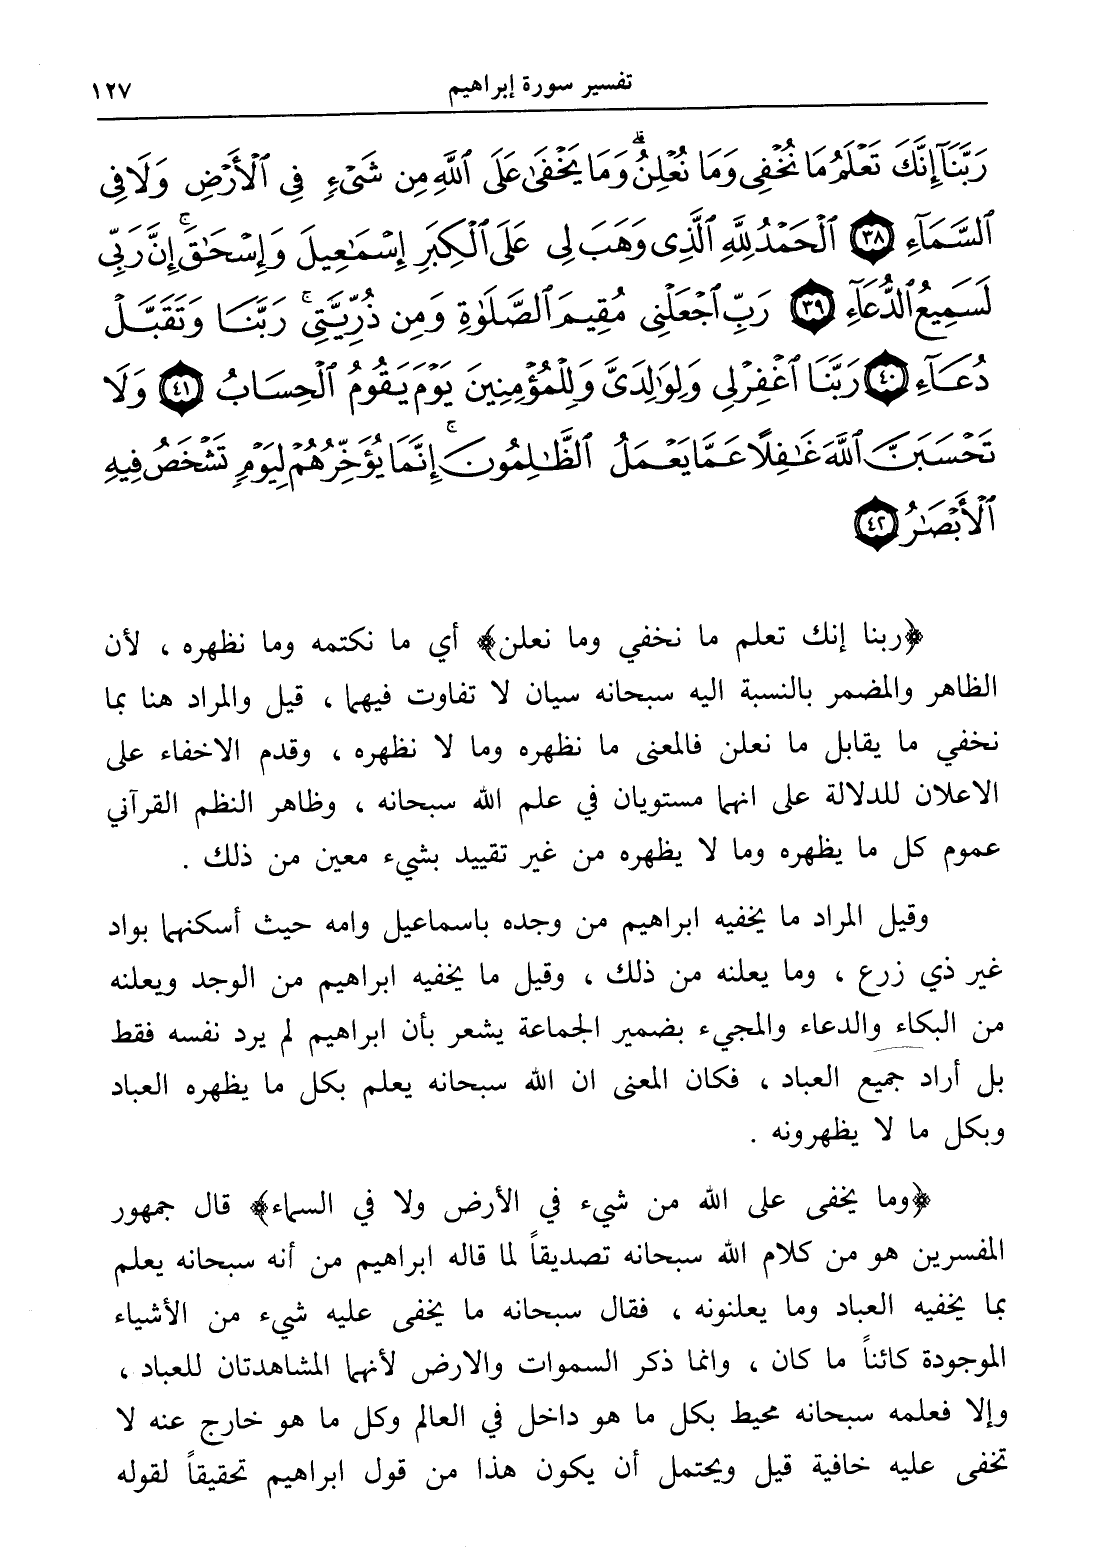 تفسير سورة إبراهيم ١٢٧
رَبَّنَآ إِنَّكَ تَعْلَمُ مَا نُخْفِى وَمَا نُعْلِنُ ۗ وَمَا يَخْفَىٰ عَلَى ٱللَّهِ مِن شَىْءٍ فِى ٱلْأَرْضِ وَلَا فِى
ٱلسَّمَآءِ ٣٨ ٱلْحَمْدُ لِلَّهِ ٱلَّذِى وَهَبَ لِى عَلَى ٱلْكِبَرِ إِسْمَٰعِيلَ وَإِسْحَٰقَ ۚ إِنَّ رَبِّى
لَسَمِيعُ ٱلدُّعَآءِ ٣٩ رَبِّ ٱجْعَلْنِى مُقِيمَ ٱلصَّلَوٰةِ وَمِن ذُرِّيَّتِى ۚ رَبَّنَا وَتَقَبَّلْ
دُعَآءِ ٤٠ رَبَّنَا ٱغْفِرْ لِى وَلِوَٰلِدَىَّ وَلِلْمُؤْمِنِينَ يَوْمَ يَقُومُ ٱلْحِسَابُ ٤١ وَلَا
تَحْسَبَنَّ ٱللَّهَ غَٰفِلًا عَمَّا يَعْمَلُ ٱلظَّٰلِمُونَ ۚ إِنَّمَا يُؤَخِّرُهُمْ لِيَوْمٍ تَشْخَصُ فِيهِ
ٱلْأَبْصَٰرُ ٤٢
﴿ربنا إنك تعلم ما نخفي وما نعلن﴾ أي ما نكتمه وما نظهره ، لأن
الظاهر والمضمر بالنسبة اليه سبحانه سيان لا تفاوت فيهما ، قيل والمراد هنا بما
نخفي ما يقابل ما نعلن فالمعنى ما نظهره وما لا نظهره ، وقدم الاخفاء على
الاعلان للدلالة على انهما مستويان في علم الله سبحانه ، وظاهر النظم القرآني
عموم كل ما يظهره وما لا يظهره من غير تقييد بشيء معين من ذلك .
وقيل المراد ما يخفيه ابراهيم من وجده باسماعيل وامه حيث أسكنهما بواد
غير ذي زرع ، وما يعلنه من ذلك ، وقيل ما يخفيه ابراهيم من الوجد ويعلنه
من البكاء والدعاء والمجيء بضمير الجماعة يشعر بأن ابراهيم لم يرد نفسه فقط
بل أراد جميع العباد ، فكان المعنى ان الله سبحانه يعلم بكل ما يظهره العباد
وبكل ما لا يظهرونه .
﴿وما يخفى على الله من شيء في الأرض ولا في السماء﴾ قال جمهور
المفسرين هو من كلام الله سبحانه تصديقاً لما قاله ابراهيم من أنه سبحانه يعلم
بما يخفيه العباد وما يعلنونه ، فقال سبحانه ما يخفى عليه شيء من الأشياء
الموجودة كائناً ما كان ، وانما ذكر السموات والارض لأنهما المشاهدتان للعباد ،
وإلا فعلمه سبحانه محيط بكل ما هو داخل في العالم وكل ما هو خارج عنه لا
تخفى عليه خافية قيل ويحتمل أن يكون هذا من قول ابراهيم تحقيقاً لقوله